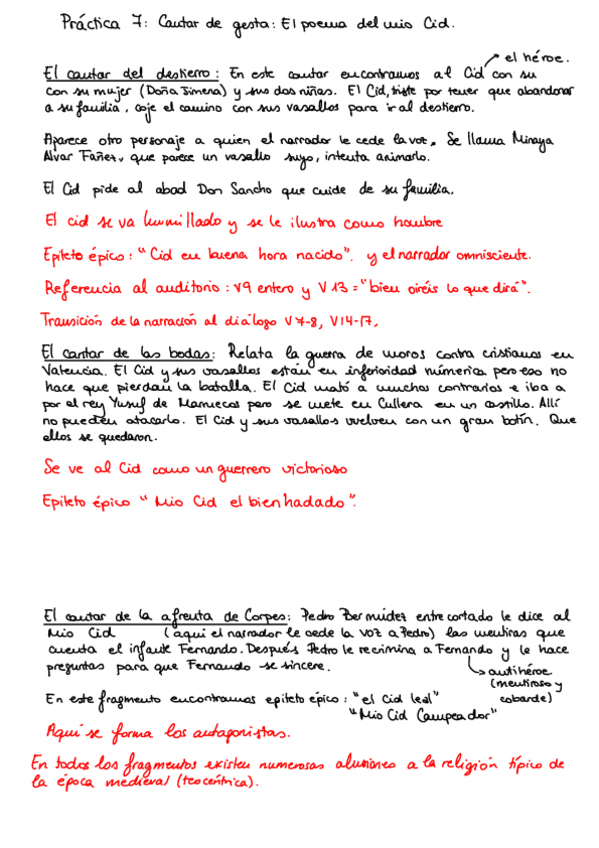 Práctica 7: Cantar de gesta: El poema del mio Cid.
el héroe.
El cantar del destierro: En este cantar encontramos al Cid con su
con su mujer (Doña Jimena) y sus dos niñas. El Cid, triste por tener que abandonar
a su familia, coje el camino con sus vasallos para ir al destierro.
Aparece otro personaje a quien el narrador le cede la voz. Se llama Minaya
Alvar Fañez, que parece un vasallo suyo, intenta animarlo.
El Cid pide al abad Don Sancho que cuide de su familia.
El cid se va humillado y se le ilustra como hombre
Epíteto épico: "Cid en buena hora nacido". y el narrador omnisciente.
Referencia al auditorio: v9 entero y V 13 = "bien oiréis lo que dirá".
Transición de la narración al diálogo V7-8, V14-17.
El cantar de las bodas: Relata la guerra de moros contra cristianos en
Valencia. El Cid y sus vasallos están en inferioridad númerica pero eso no
hace que pierdan la batalla. El Cid mató a muchos contrarios e iba a
por el rey Yusuf de Marruecos pero se mete en Cullera en un castillo. Allí
no pueden atacarlo. El Cid y sus vasallos vuelven con un gran botín. Que
ellos se quedaron.
Se ve al Cid como un guerrero victorioso
Epíteto épico "Mio Cid el bienhadado".
El cantar de la afrenta de Corpes: Pedro Bermúdez entrecortado le dice al
Mio Cid (aquí el narrador le cede la voz a Pedro) las mentiras que
cuenta el infante Fernando. Después Pedro le recrimina a Fernando y le hace
preguntas para que Fernando se sincere.
antihéroe
(mentiroso y
cobarde)
En este fragmento encontramos epíteto épico: "el Cid leal"
"Mio Cid Campeador"
Aquí se forma los antagonistas.
En todos los fragmentos existen numerosas alusiones a la religión típico de
la época medieval (teocéntrica).